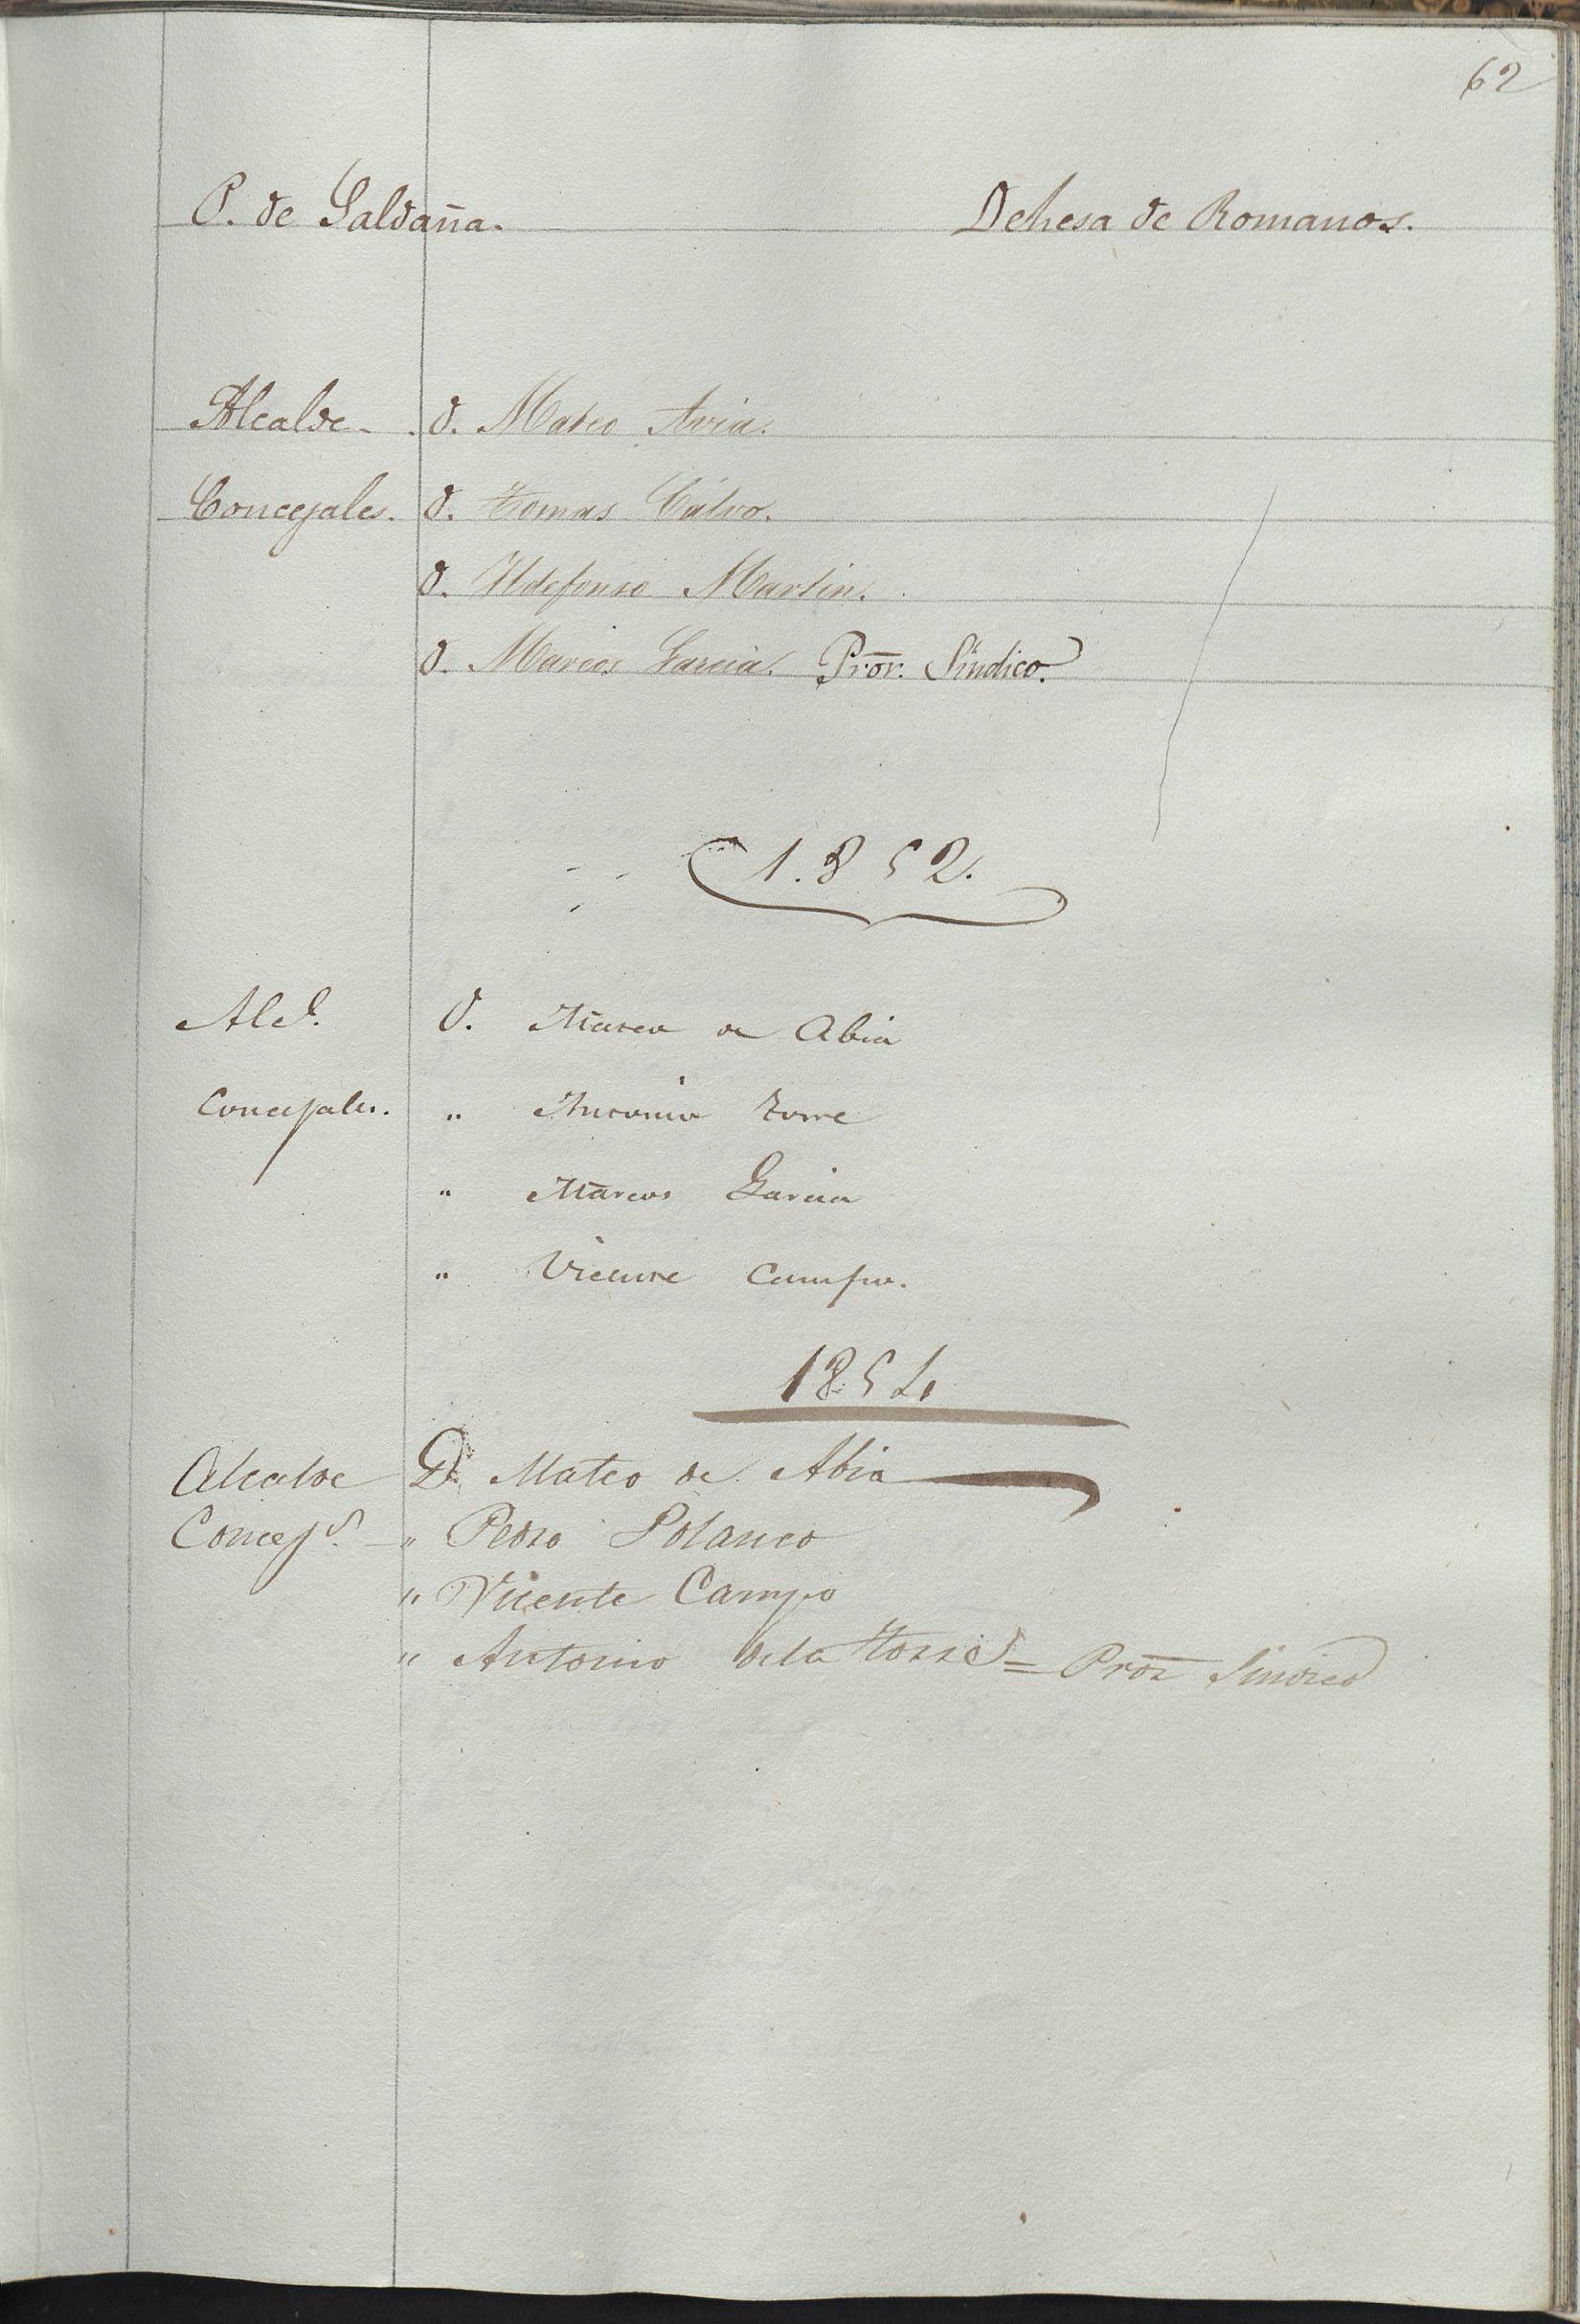 62
P. de Saldaña. Dehesa de Romanos.
Alcalde. D. Mateo Avia.
Concejales. D. Tomas Calvo.
D. Ildefonso Martin.
D. Marcos Garcia. Pror. Síndico.
1.852.
Alc.e D. Mateo de Abia
Concejales. " Antonio Torre
" Marcos Garcia
" Vicente Campo.
1854
Alcalde D. Mateo de Abia
Concej.s " Pedro Polanco
" Vicente Campo
" Antonio dela Torre = Pror Sindico